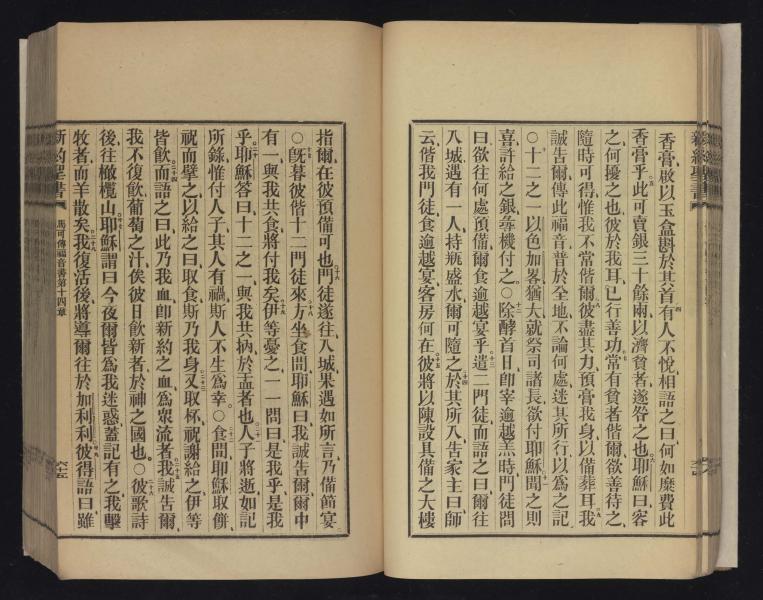 新約聖書
香膏、啟以玉盒斟於其首、有人不悅相語之曰、何如糜費此
香膏乎、此可賣銀三十餘兩、以濟貧者、遂咎之也、耶穌曰、容
之、何擾之也、彼於我耳、已行善功、常有貧者偕爾、欲善待之、
隨時可得、惟我不常偕爾、彼盡其力、預膏我身、以備葬耳、我
誠告爾、傳此福音普於全地、不論何處、述其所行、以為之記、
○十二之一、以色加畧猶大、就祭司諸長、欲付耶穌、聞之則
喜、許給之銀、尋機付之。○除酵首日、卽宰逾越羔時、門徒問
曰、欲往何處預備、爾食逾越宴乎、遣二門徒而語之曰、爾往
入城、遇有一人、持瓶盛水、爾可隨之、於其所入、告家主曰、師
云、偕我門徒、食逾越宴、客房何在、彼將以陳設具備之大樓
指爾、在彼預備可也、門徒遂往入城、果遇如所言、乃備節宴
○旣暮、彼偕十二門徒來、方坐食間、耶穌曰、我誠告爾、爾中
有一與我共食、將付我矣、伊等憂之、一一問曰、是我乎、是我
乎、耶穌答曰、十二之一、與我共抐於盂者也、人子將逝、如記
所錄、惟付人子、其人有禍、斯人不生為幸。○食間、耶穌取餅、
祝而擘之、以給之曰、取食、斯乃我身、又取杯、祝謝給之、伊等
皆飲、而語之曰、此乃我血、卽新約之血、為衆流者、我誠告爾、
我不復飲葡萄之汁、俟彼日飲新者、於神之國也。○彼歌詩
後、往橄欖山、耶穌謂曰、今夜爾皆為我迷惑、蓋記有之、我擊
牧者、而羊散矣、我復活後、將導爾往於加利利、彼得語曰、雖
新約聖書 馬可傳福音書第十四章 六十三